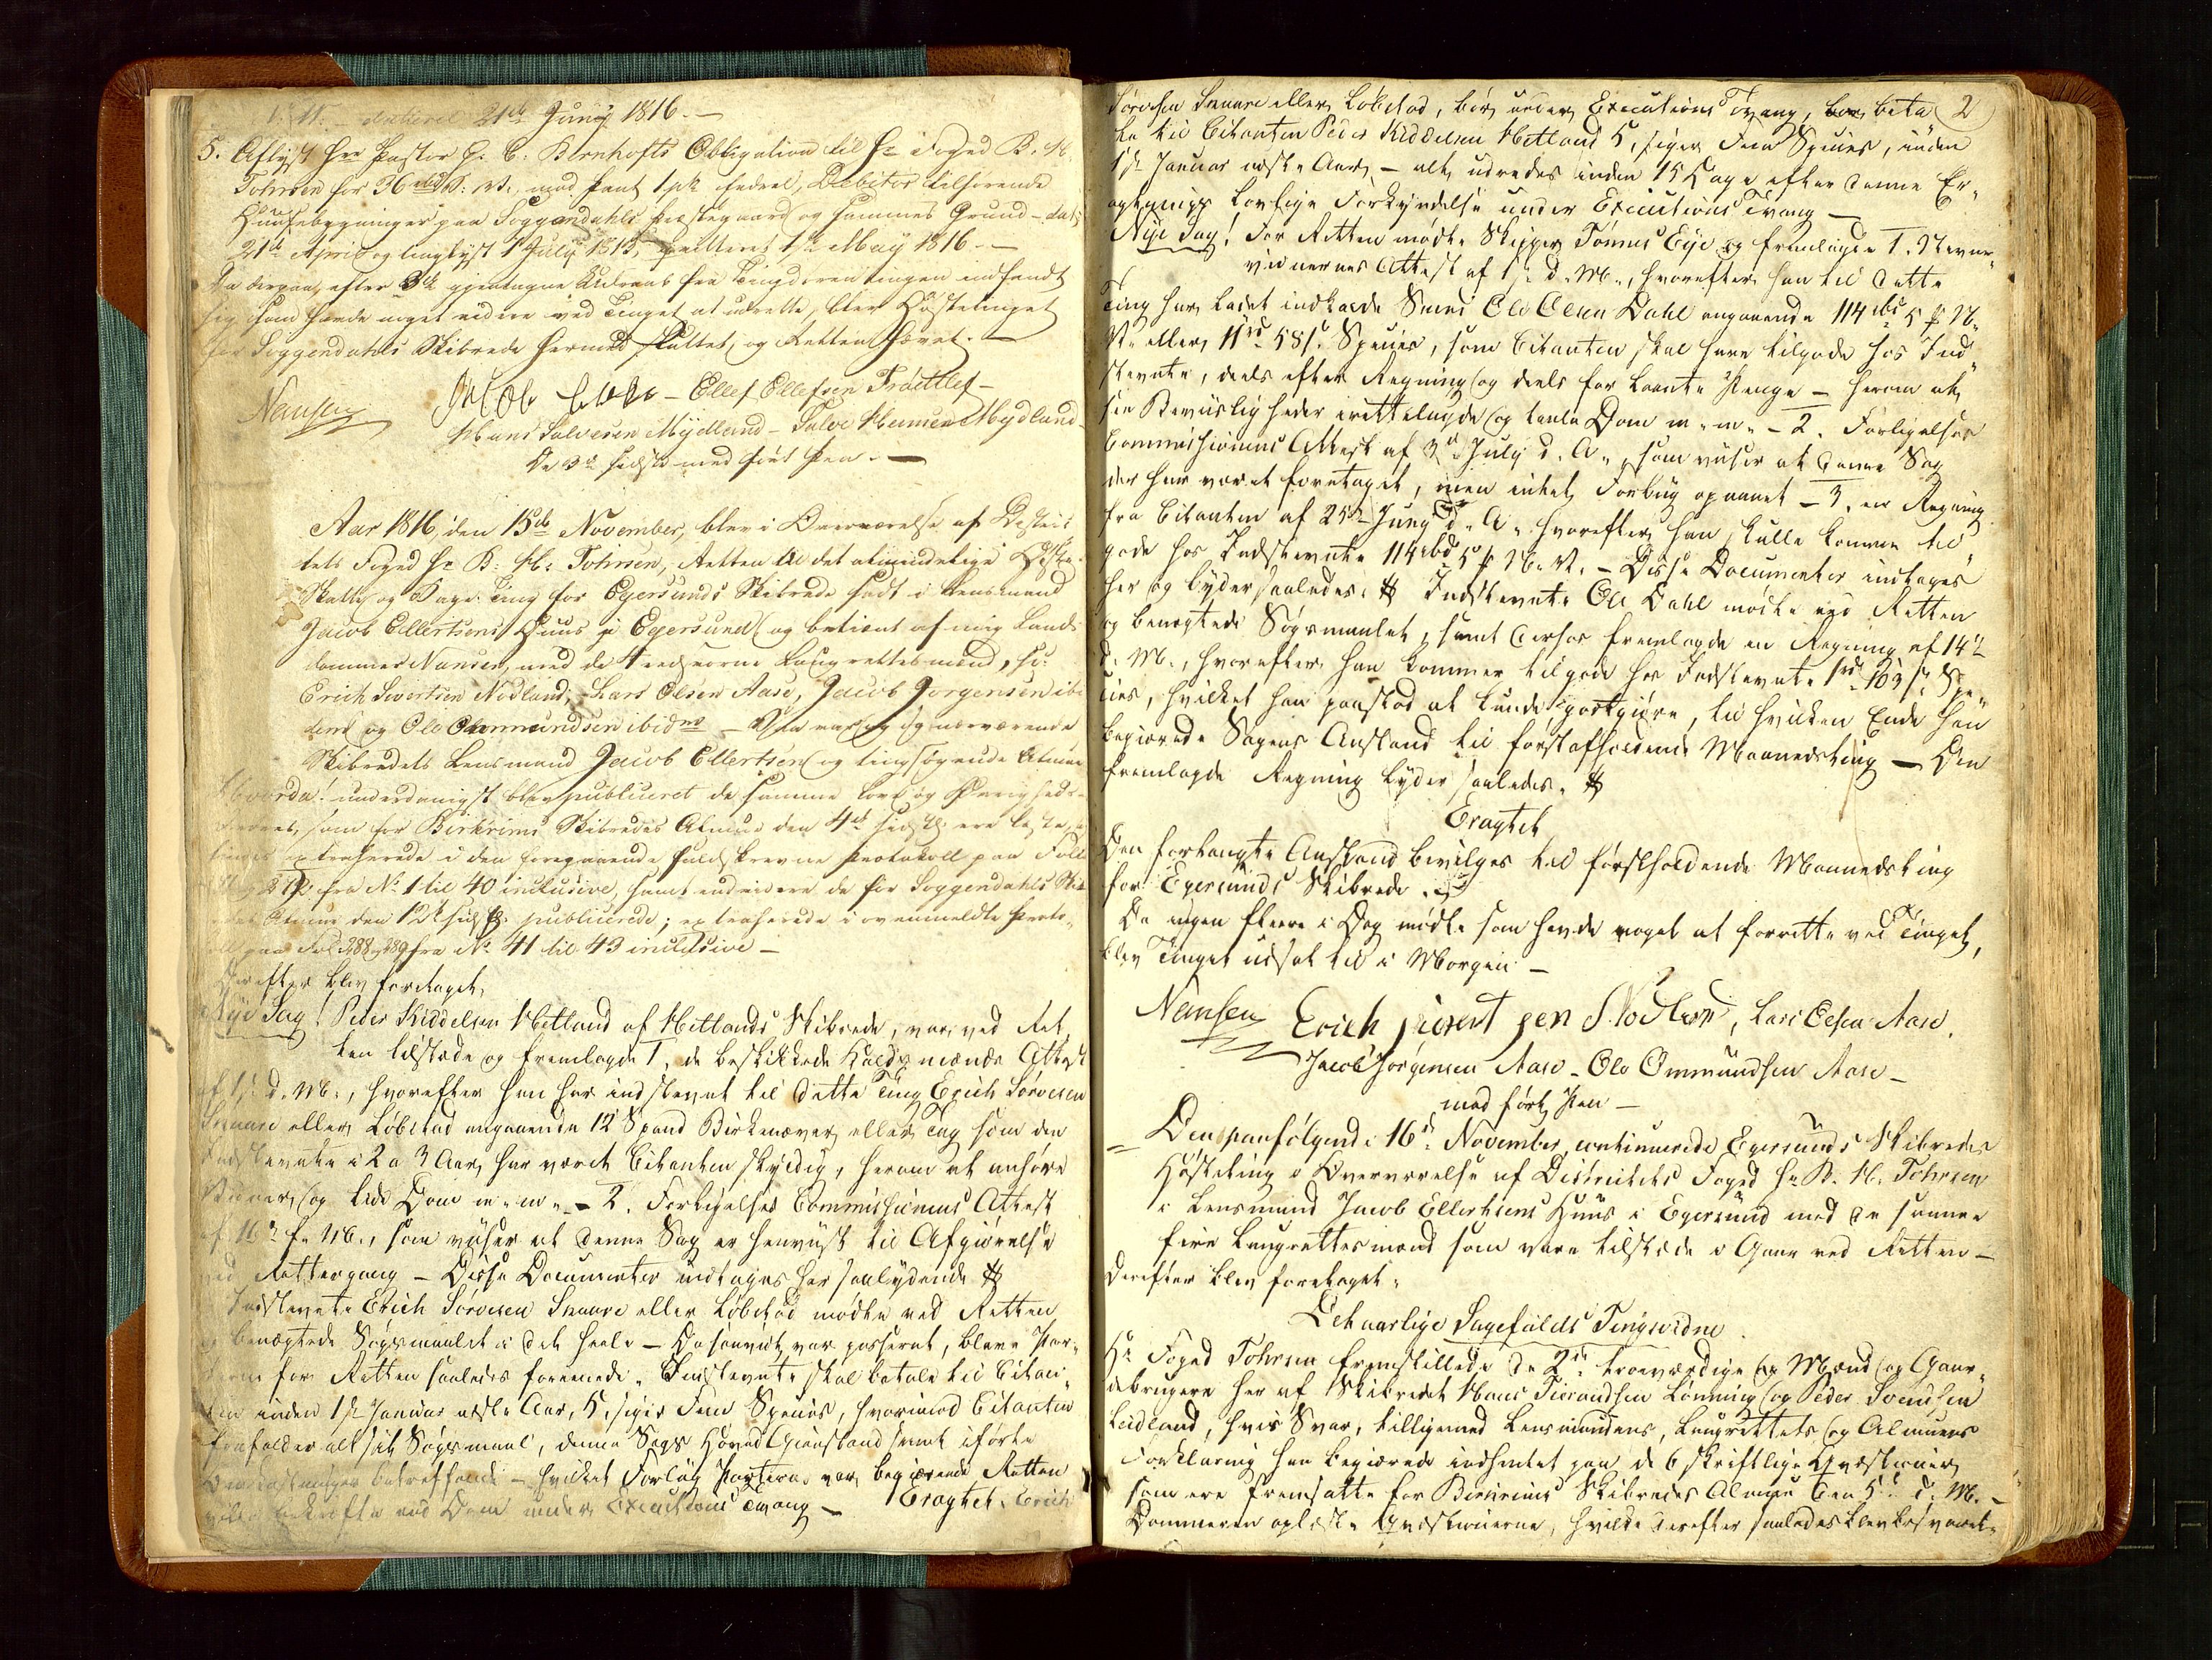 dateret 21de Junij 1816.—
5. Aflyst Hrr Pastor C. Bernhofts Obligation til Hr Foged B. H.
Tohrsen for 36 rbd. N. V. mod Pant 1 pk federel, Debitor tilhørende
Huusebygninger paa Soggendahls Præstegaard og sammes Grund — dat:
21de April og tinglyst 1 July 1815, qvitteret 1ste May 1816.—
Da derpaa, efter 3de gientagne Udraab fra Tingdøren ingen indfandt
sig som havde noget videre ved Tinget at udrette, blev Høstetinget
for Soggendahls Skibrede hermed sluttet, og Retten hævet.—
Nansen Jacob — Ellef Ellefsen Trættlef —
Hans Salvesen Mydland — Salve Hansen Mydland —
De 3de sidste med ført Pen.—
Aar 1816, den 15de November, blev i Overværelse af Distric
tets Foged Hr B. H. Tohrsen, Retten til det almindelige Høste-
Skatte og Sage-Ting for Egersunds Skibrede sadt i Lensmand
Jacob Ellertsens Huus i Egersund og betient af mig Land
dommer Nansen, med de 4 eedsvorne Laugrettesmænd, so:
Erich Sivertsen Nodland, Lars Olsen Aase, Jacob Jørgensen ibi
dem og Ole Ommundsen ibidm — Da var og nærværende
Skibredets Lensmand Jacob Ellertsen og tingsøgende Almue
Hvorda! underdanigst blev publiceret de samme Love og Øvrigheds-
som for Birkrims Skibredes Almue den 4de sidstl. ere læste,
extraherede i den foregaaende fuldskrevne Protokoll paa Foll
fra No 1 til 40 inclusive, samt endvidere de for Soggendahls Ski
Almue den 12te publicerede; extraherede i ovenmeldte Proto-
coll paa Fol. 288 og 289 fra No 41 til 43 inclusive —
Derefter blev foretaget,
Nye Sag! Peder Kiddelsen Hetland af Hetlands Skibrede, var ved Ret
ten tilstede og fremlagde 1, de beskikkede Kaldsmænds Attest
af 1ste d. M., hvorefter han har indstevnet til dette Ting Erich Sørvesen
Snaare eller Løbstad angaaende 12 Spand Birkenæver eller Tag som den
Indstevnte i 2 a 3 Aar har været Citanten skyldig, herom at anhøre
Vidner og lide Dom m. m. — 2. Forligelses Commissionens Attest
af 16de f. M., som viiser at denne Sag er henviist til Afgiørelse
ved Rettergang — Disse Documenter indtages her saalydende #
Indstevnte Erich Sørvesen Snaare eller Løbstad mødte ved Retten
og benægtede Søgsmaalet i det heele — Da saavidt var passeret, bleve Par-
terne for Retten saaledes foreenede. Indstevnte skal betale til Citan-
ten inden 1ste Januar næste Aar, 5, siger Fem Species, hvorimod Citanten
frafalder alt sit Søgsmaal, denne Sags Hoved Gienstand samt iførte
Omkostninger betreffende — hvilket Forlig Parterne var begiærende Retten
ville bekræfte ved Dom under Executions Tvang — Eragtet. Erich
2
Sørvesen Snaare eller Løbstad, bør under Executions Tvang, bør beta
le til Citanten Peder Kiddelsen Hetland 5, siger Fem Species, inden
1ste Januar næste Aar, — alt udredes inden 15 Dage efter denne Er-
agtnings lovlige Forkyndelse under Executions Tvang —
Nye Sag! For Retten mødte Skipper Tønnes Eye og fremlagde 1. Stevne-
vidnernes Attest af 1ste d. M., hvorefter han til dette
Ting har ladet indkalde Svend Ole Olsen Dahl angaaende 114 rbd 5 s N.
V. eller 11 rd 58 s. Species, som Citanten skal have tilgode hos Ind-
stevnte, deels efter Regning og deels for laante Penge — herom at
see Beviisligheder irettelagde og taale Dom m. m. — 2. Forligelses
Commissionens Attest af 3de July d. A., som viiser at denne Sag
der har været foretaget, men intet Forliig opnaaet — 3, en Regning
fra Citanten af 25de Juny d. A. hvorefter han skulle komme til-
gode hos Indstevnte 114 rbd 5 s N. V. — Disse Documenter indtages
her og lyder saaledes: # Indstevnte Ole Dahl mødte ved Retten
og benægtede Søgsmaalet, samt derhos fremlagde en Regning af 14de
d. M., hvorefter han kommer tilgode hos Indstevnte 1 rd 103 s. Spe-
cies, hvilket han paastod at kunde godtgiøre, til hvilken Ende han
begiærede Sagens Anstand til førstafholdende Maanedsting — Den
fremlagde Regning lyder saaledes. #
Eragtet
Den forlangte Anstand bevilges til førstholdende Maanedsting
for Egersunds Skibrede.
Da ingen fleere i Dag mødte som havde noget at forrette ved Tinget,
blev Tinget udsat til i Morgen —
Nansen Erich sivert sen Nodland, Lars Olsen Aase,
Jacob Jørgensen Aase — Ole Ommundsen Aase —
med ført Pen —
Den paafølgende 16de November continuerede Egersunds Skibredes
Høsteting i Overværelse af Districtets Foged Hr B. H. Tohrsen
i Lensmand Jacob Ellertsens Huus i Egersund med de samme
fire Laugrettesmænd som vare tilstede i Gaar ved Retten —
Derefter blev foretaget:
Det aarlige Sagefalds Tingsvidne.
Hr Foged Tohrsen fremstillede de 2de troeværdige Mænd og Gaar-
debrugere her af Skibredet Hans Tieraudsen Lønning og Peder Svendsen
Leidland, hvis Svar, tilligemed Lensmandens, Laugrettets og Almuens
Forklaring han begiærede indhentet paa de 6 skriftlige Qvæstioner,
som ere fremsatte for Birkrims Skibredes Almue den 5te d. M. —
Dommeren oplæste Qvæstionerne, hvilke derefter saaledes blev besvaret.